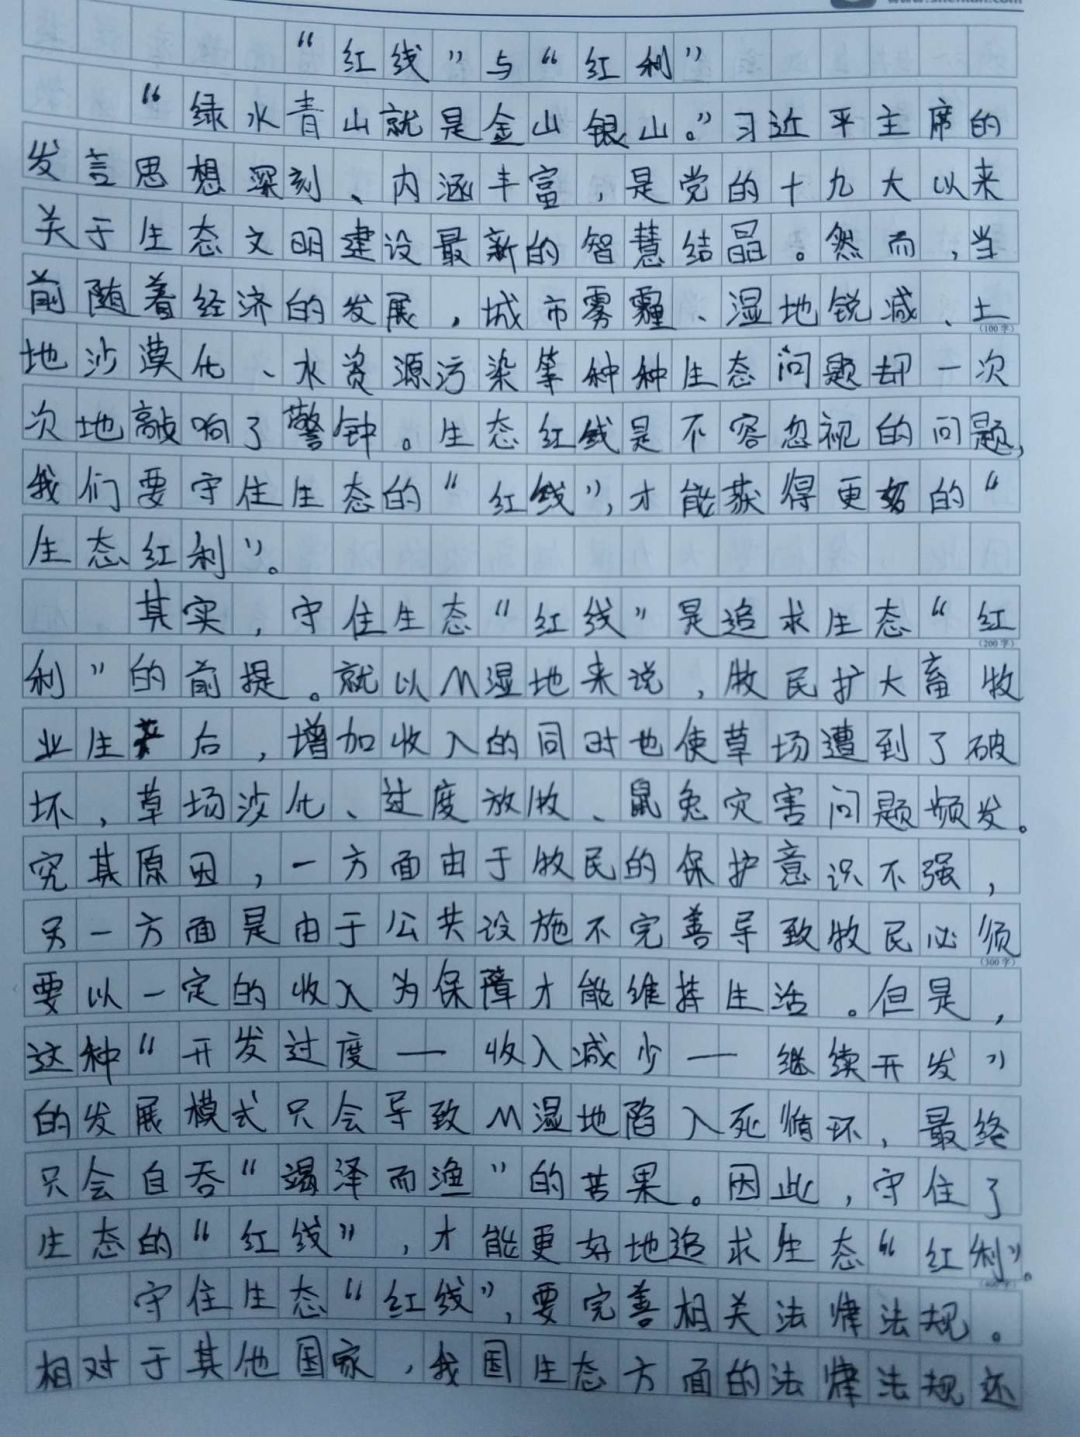 “红线”与“红利”
“绿水青山就是金山银山。”习近平主席的
发言思想深刻、内涵丰富，是党的十九大以来
关于生态文明建设最新的智慧结晶。然而，当
前随着经济的发展，城市雾霾、湿地锐减、土
(100字)
地沙漠化、水资源污染等种种生态问题却一次
次地敲响了警钟。生态红线是不容忽视的问题，
我们要守住生态的“红线”，才能获得更好的“
生态红利”。
其实，守住生态“红线”是追求生态“红
(200字)
利”的前提。就以M湿地来说，牧民扩大畜牧
业生产后，增加收入的同时也使草场遭到了破
坏，草场沙化、过度放牧、鼠兔灾害问题频发。
究其原因，一方面由于牧民的保护意识不强，
另一方面是由于公共设施不完善导致牧民必须
(300字)
要以一定的收入为保障才能维持生活。但是，
这种“开发过度—收入减少—继续开发”
的发展模式只会导致M湿地陷入死循环，最终
只会自吞“竭泽而渔”的苦果。因此，守住了
生态的“红线”，才能更好地追求生态“红利”。
(400字)
守住生态“红线”，要完善相关法律法规。
相对于其他国家，我国生态方面的法律法规还